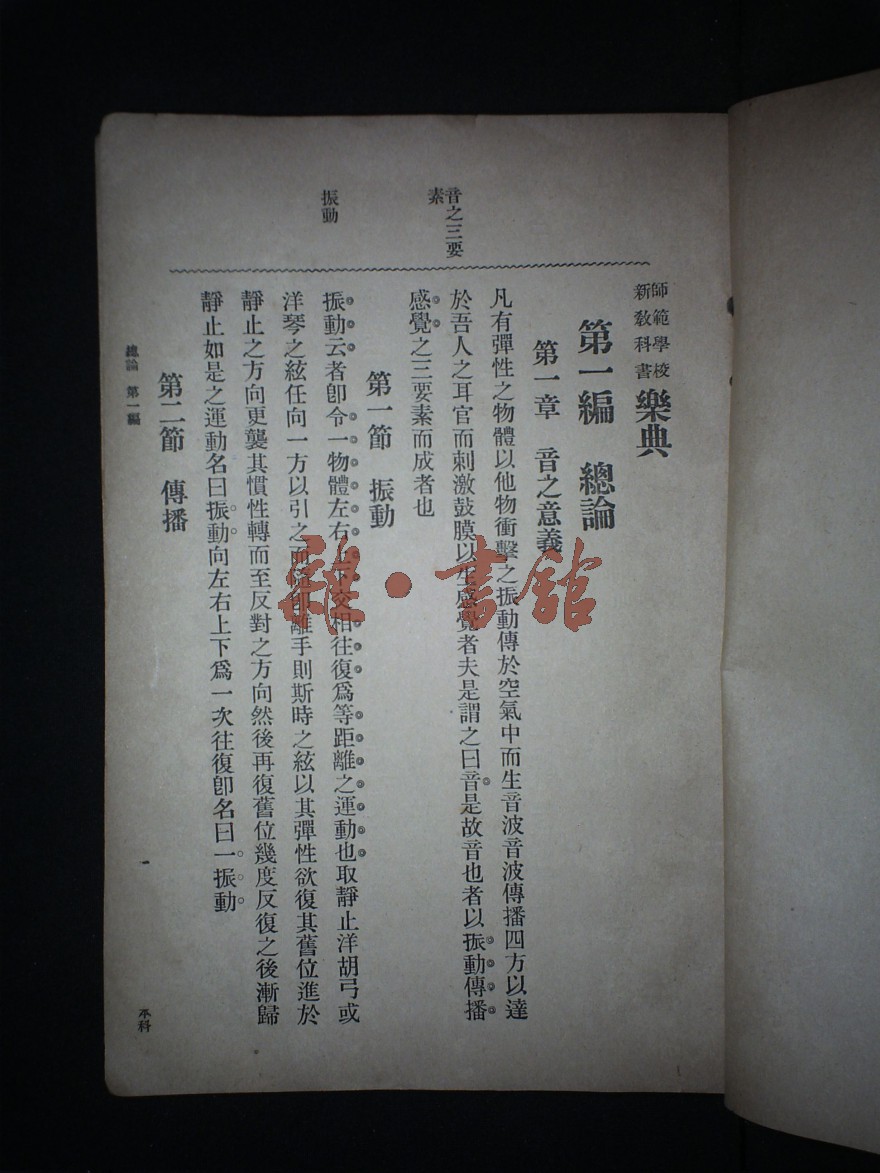 師範學校
新敎科書
樂典
第一編　總論
第一章　音之意義
凡有彈性之物體以他物衝擊之振動傳於空氣中而生音波音波傳播四方以達
於吾人之耳官而刺激鼓膜以生感覺者夫是謂之曰音是故音也者以振動傳播
感覺之三要素而成者也
音之三要
素
第一節　振動
振動
振動云者卽令一物體左右上下交相往復爲等距離之運動也取靜止洋胡弓或
洋琴之絃任向一方以引之而卽離手則斯時之絃以其彈性欲復其舊位進於
靜止之方向更襲其慣性轉而至反對之方向然後再復舊位幾度反復之後漸歸
靜止如是之運動名曰振動向左右上下爲一次往復卽名曰一振動
第二節　傳播
總論　第一編
一
本科
雜·書館